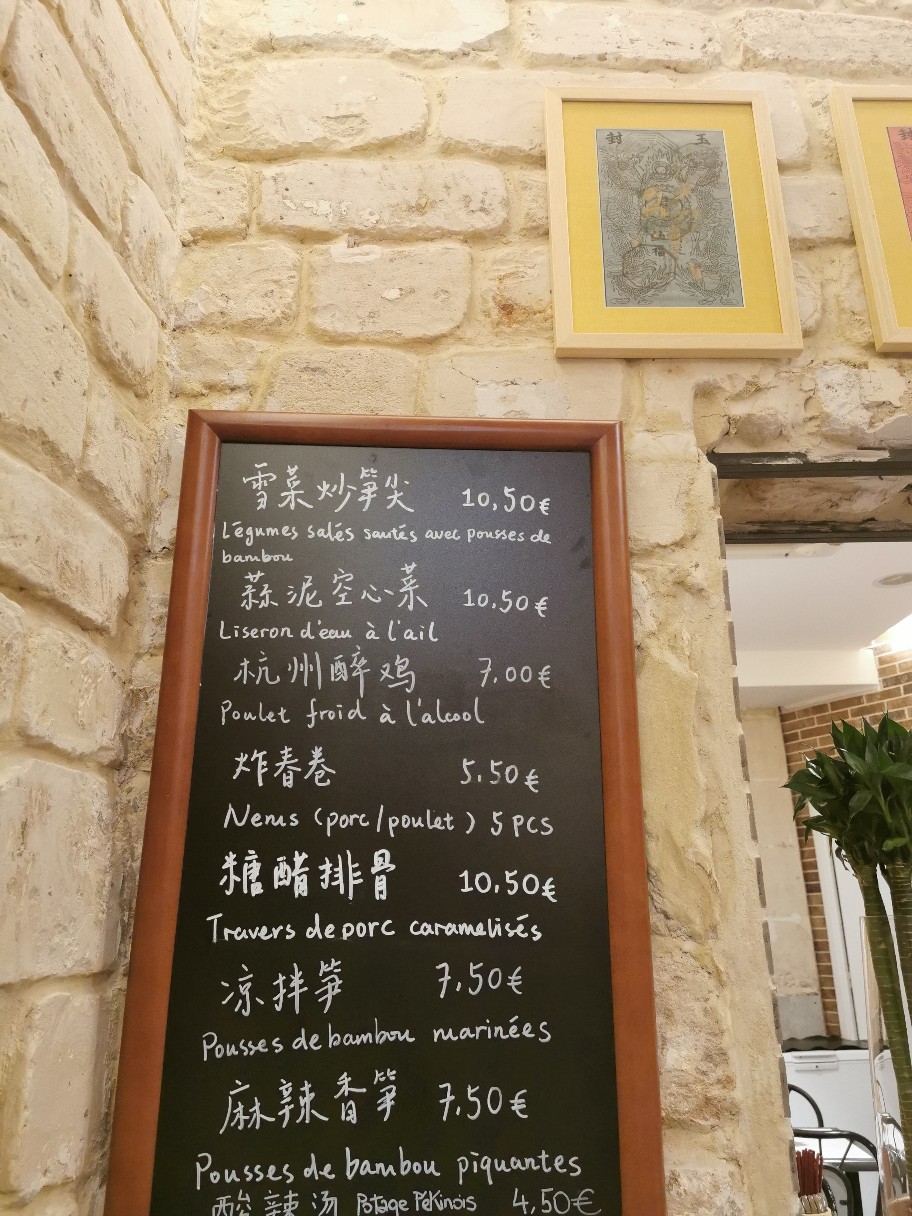 封 玉
雪菜炒笋尖 10,50€
Légumes salés sautés avec pousses de
bambou
蒜泥空心菜 10.50€
Liseron d'eau à l'ail
杭州醉鸡 7.00€
Poulet froid à l'alcool
炸春卷 5.50€
Nems (porc/poulet) 5 pcs
糖醋排骨 10.50€
Travers de porc caramelisés
凉拌笋 7,50€
Pousses de bambou marinées
麻辣香笋 7,50€
Pousses de bambou piquantes
酸辣汤 Potage Pékinois 4,50€